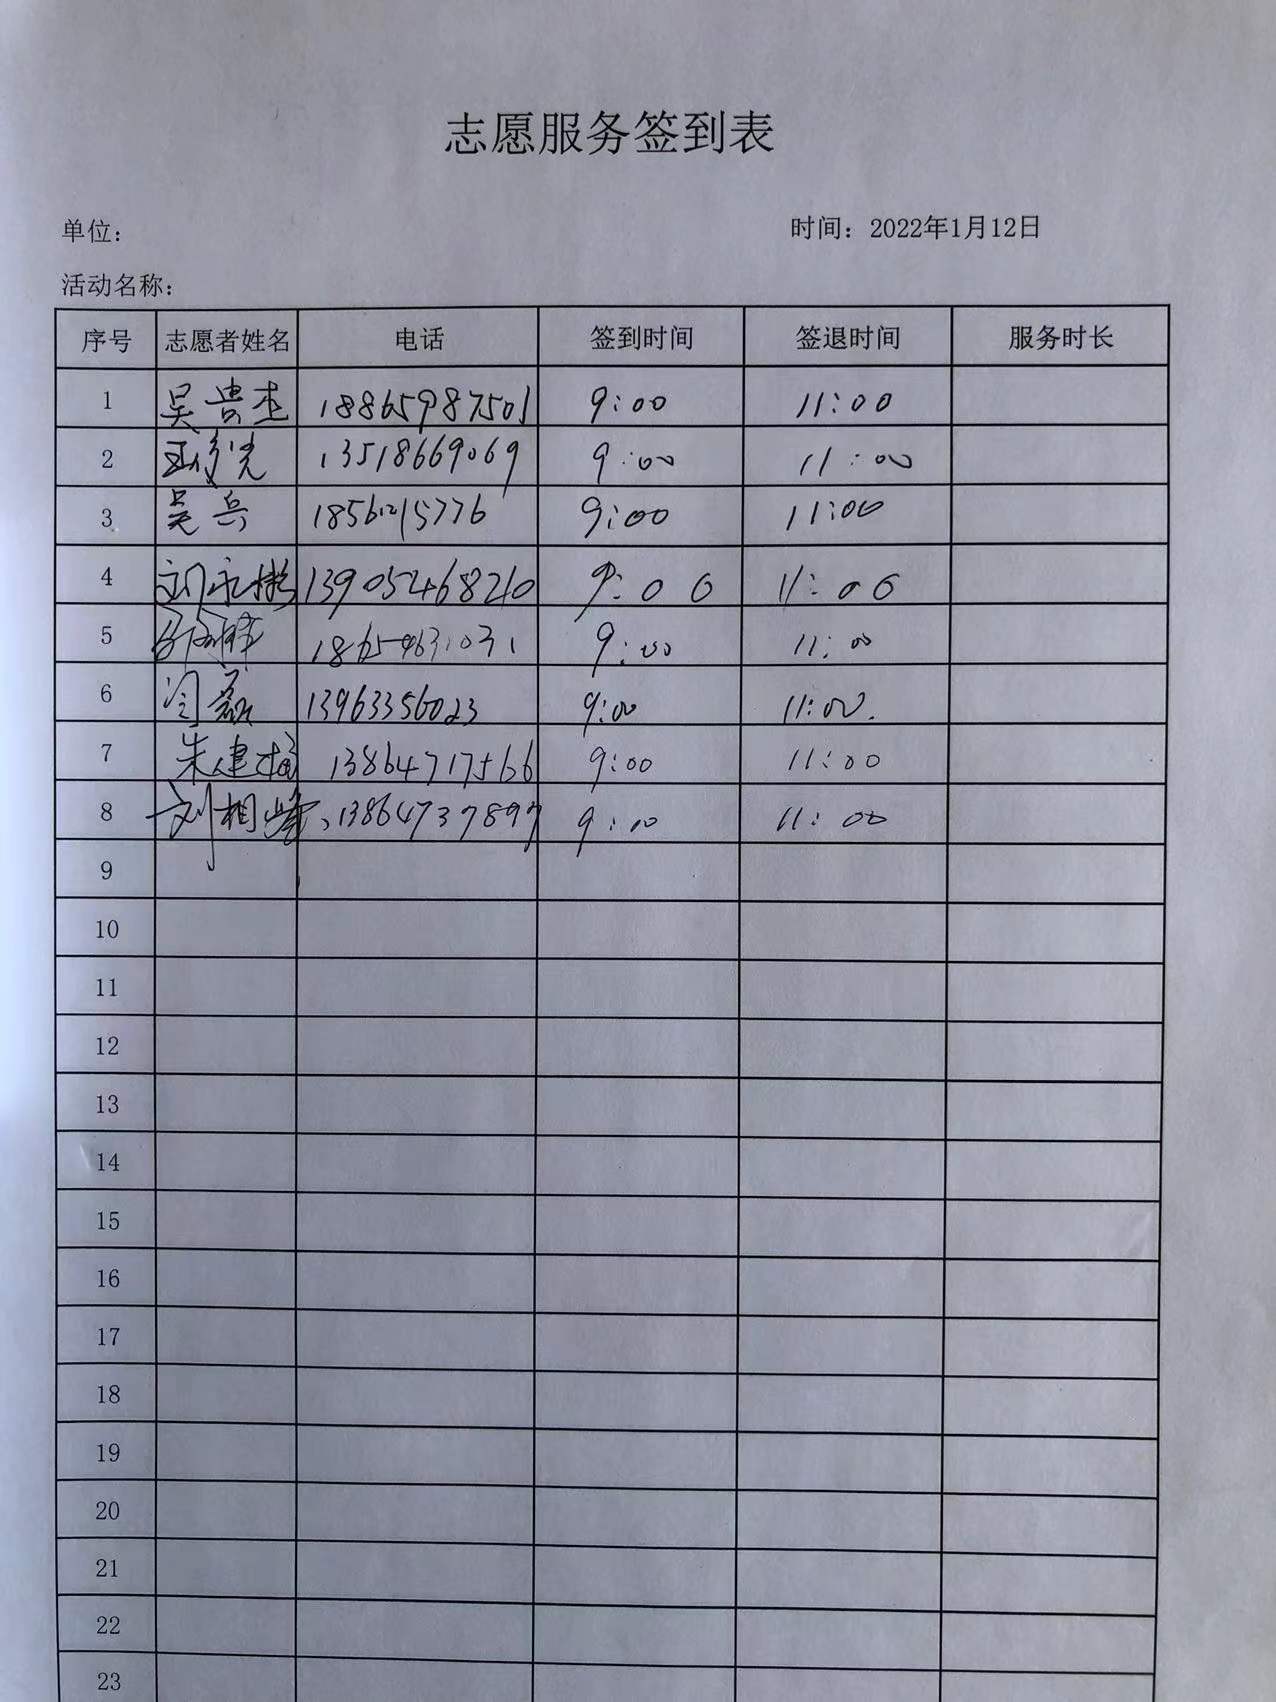 志愿服务签到表
单位： 时间：2022年1月12日
活动名称：
序号 志愿者姓名 电话 签到时间 签退时间 服务时长
1 吴贵杰 18865987501 9:00 11:00
2 13518669069 9:00 11:00
3 吴兵 18561215776 9:00 11:00
4 13905468210 9:00 11:00
5 9:00 11:00
6 闫磊 13963356023 9:00 11:00
7 朱建梅 13864717566 9:00 11:00
8 刘相峰 13864737897 9:00 11:00
9
10
11
12
13
14
15
16
17
18
19
20
21
22
23